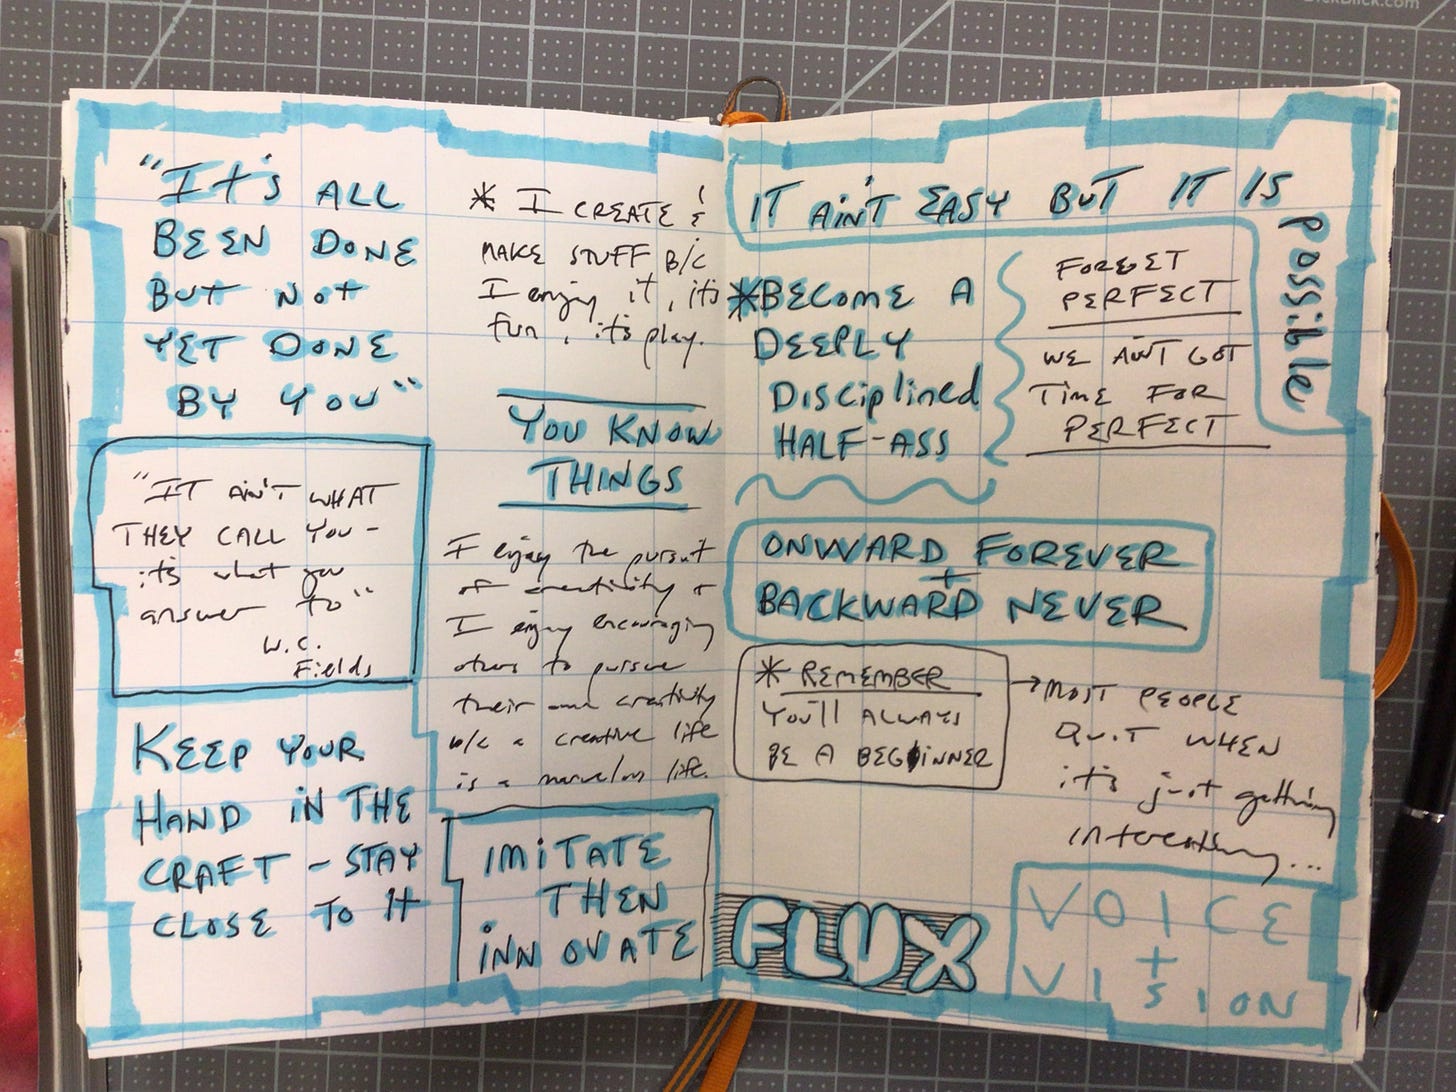 "It's ALL
BEEN DONE
BUT Not
YET DONE
BY YOU"
"IT AiN'T WHAT
THEY CALL YOU -
it's what you
answer to"
W.C.
Fields
KEEP YOUR
HAND iN THE
CRAFT - STAY
CLOSE To It
* I CREATE &
MAKE STUFF B/C
I enjoy it, it's
fun, it's play.
YOU KNOW
THINGS
I enjoy the pursuit
of creativity +
I enjoy encouraging
others to pursue
their own creativity
b/c a creative life
is a marvelous life.
iMiTATE
THEN
iNNOVATE
IT AiN'T EASY BUT IT IS
Possible
*BECOME A
DEEPLY
Disciplined
HALF-ASS
FORGET
PERFECT
WE AiN'T GOT
TiME FOR
PERFECT
ONWARD FOREVER
+
BACKWARD NEVER
* REMEMBER
YOU'll ALWAYS
BE A BEGiNNER
→ MOST PEOPLE
QUiT WHEN
it's just getting
interesting...
FLUX
VOICE
+
VISION